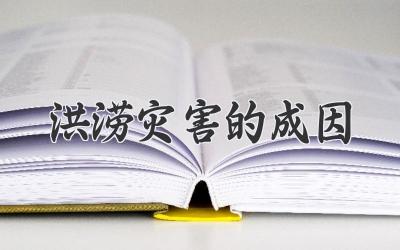 洪涝灾害的成因